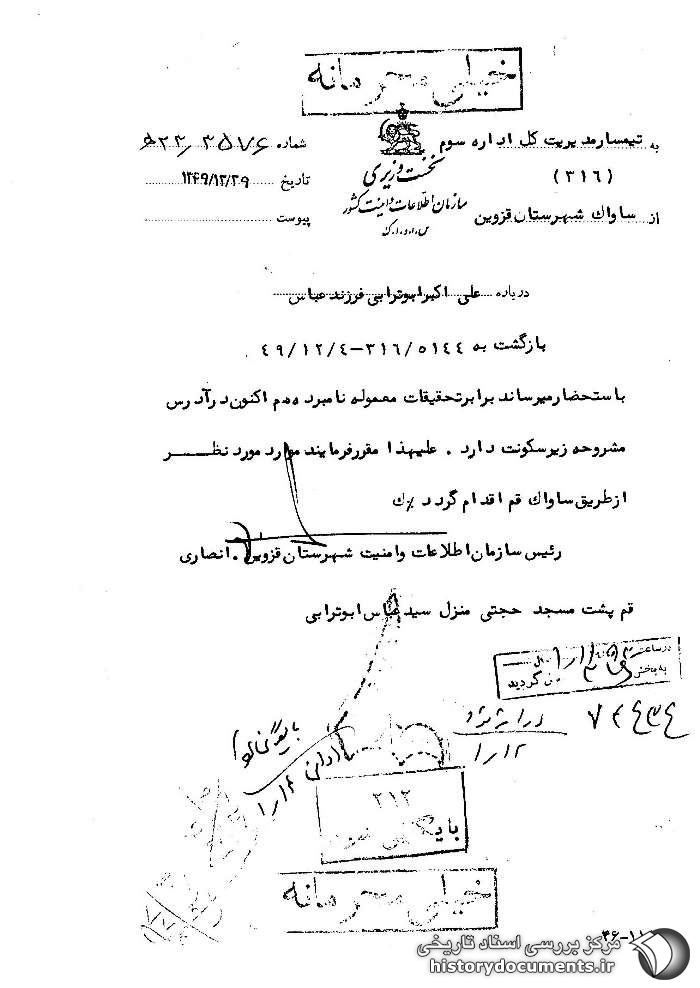 خیلی محرمانه
به تیمسار مدیریت کل اداره سوم
(۳۱۶)
از ساواک شهرستان قزوین
نخست وزیری
سازمان اطلاعات و امنیت کشور
س.ا.و.ا.ک
شماره ۳۵۷۶
تاریخ ۱۳۴۹/۱۲/۲۹
پیوست
درباره علی اکبر ابوترابی فرزند عباس
بازگشت به ۳۱۶/۵۱۴۴-۴۹/۱۲/۴
باستحضار میرساند برابر تحقیقات معموله نامبرده هم اکنون در آدرس
مشروحه زیر سکونت دارد . علیهذا مقرر فرمایند موارد مورد نظر
از طریق ساواک قم اقدام گردد
رئیس سازمان اطلاعات و امنیت شهرستان قزوین . انصاری
قم پشت مسجد حجتی منزل سید عباس ابوترابی
در ساعت
به بخش گردید
۱۲/۱
۲۱۲
خیلی محرمانه
مرکز بررسی اسناد تاریخی
historydocuments.ir